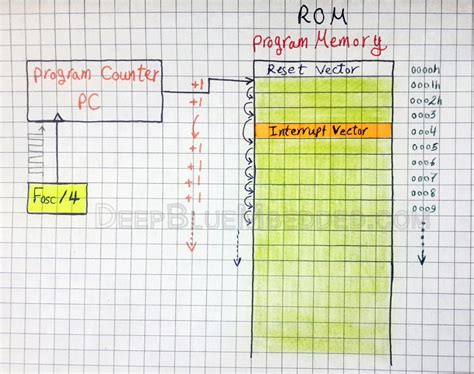 ROM
Program Memory
Program Counter
PC
Reset Vector
Interrupt Vector
Fosc/4
+1
+1
+1
+1
+1
+1
0000h
0001h
0002h
0003
0004
0005
0006
0007
0008
0009
DEEPBLUEMBEDDED.COM